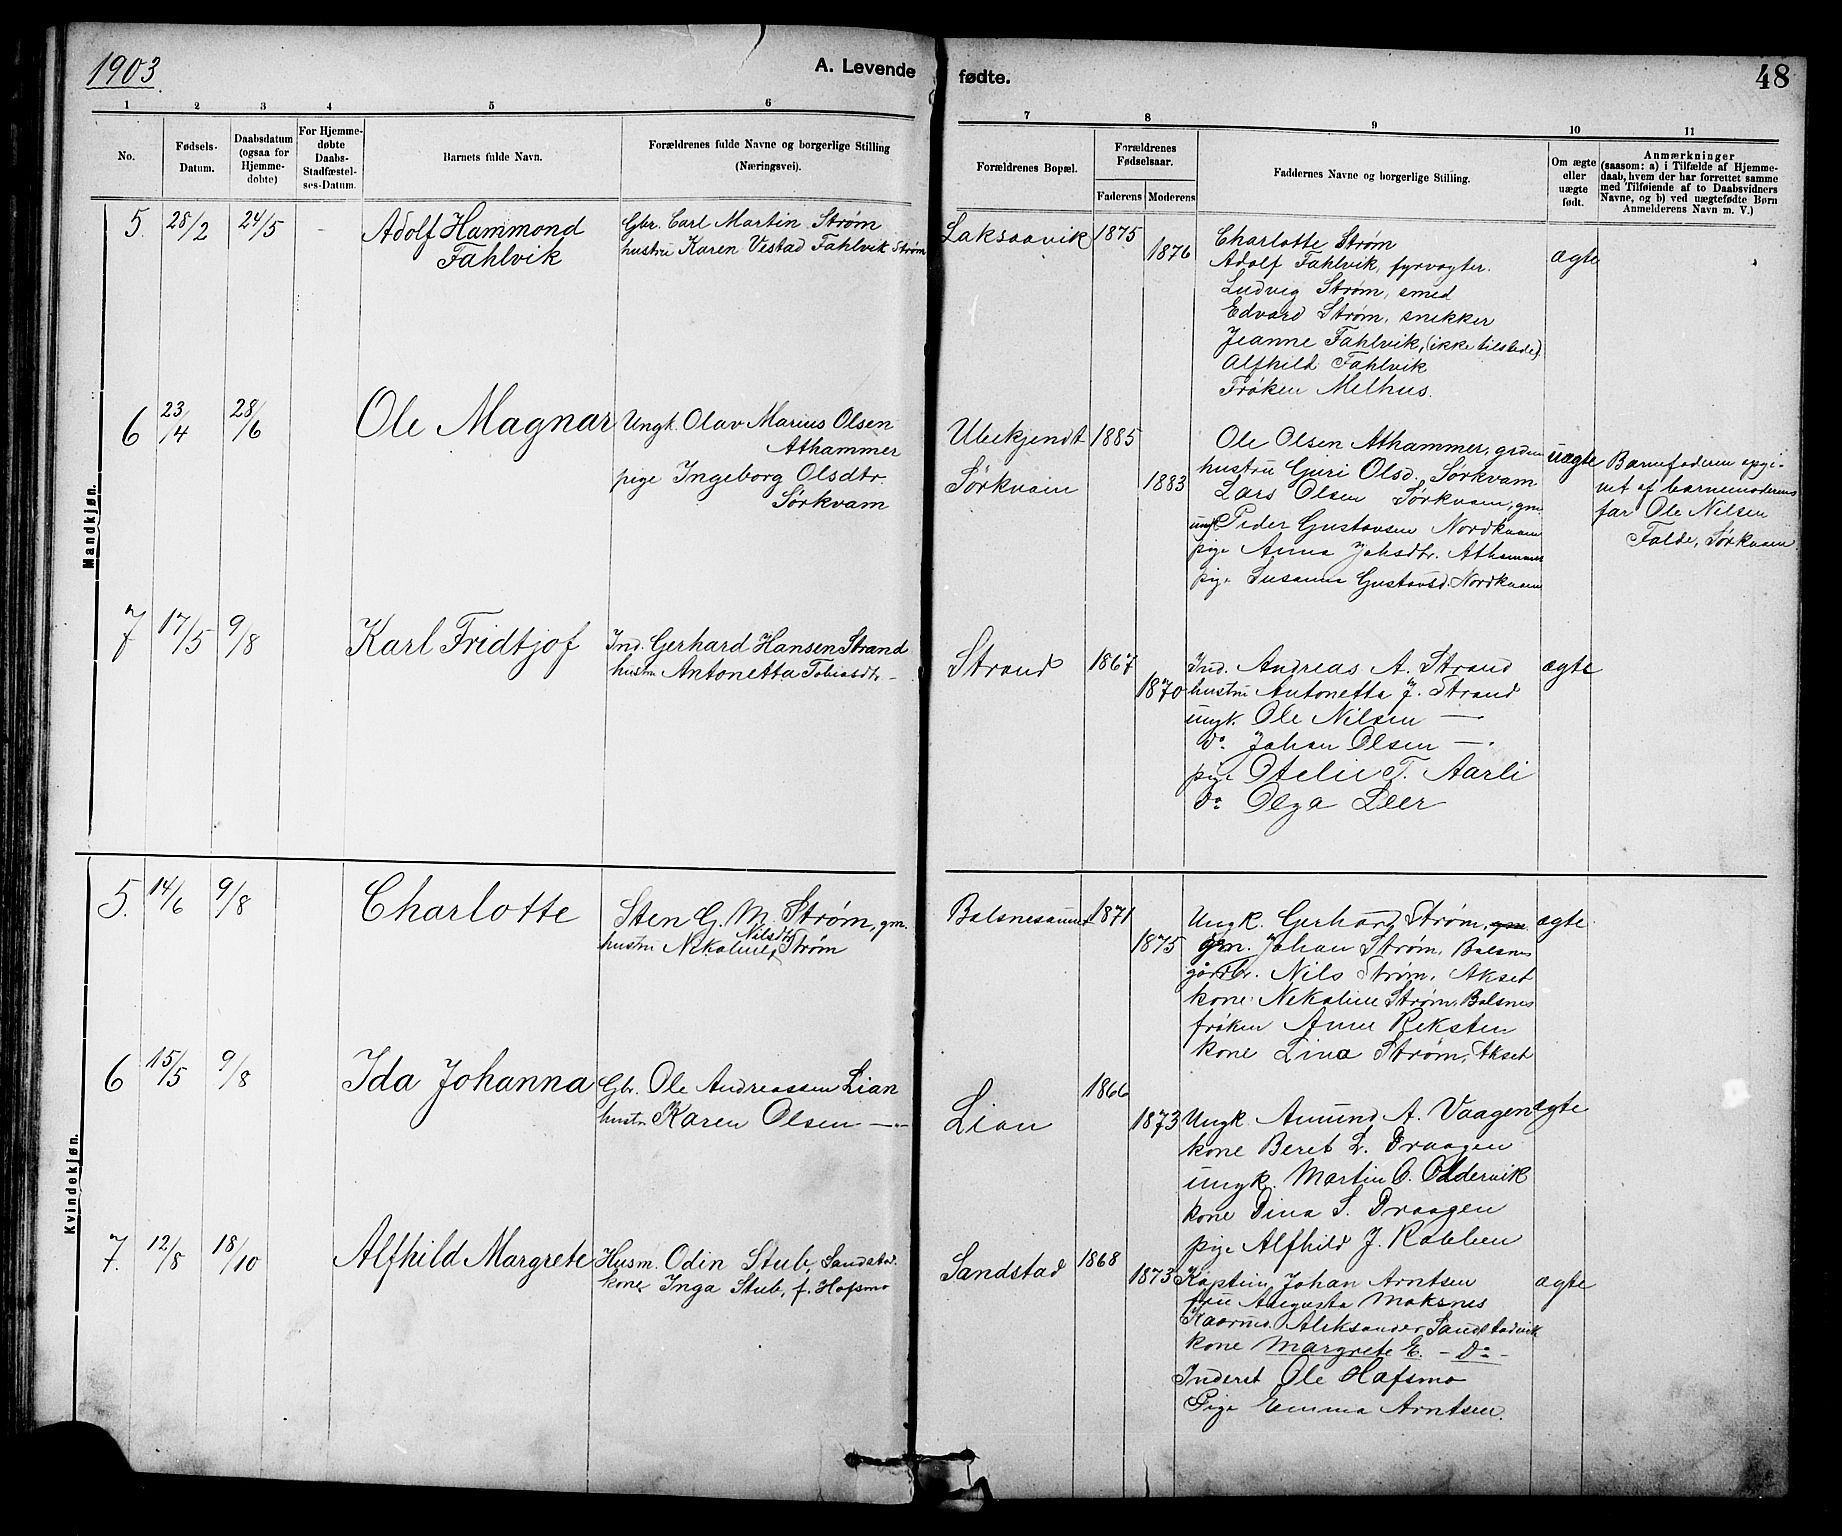 1903
A. Levende fødte.
48
1 2 3 4 5 6 7 8 9 10 11
No.
Fødsels-
Datum.
Daabsdatum
(ogsaa for
Hjemme-
døbte)
For Hjemme-
døbte
Daabs-
Stadfæstel-
ses-Datum.
Barnets fulde Navn.
Forældrenes fulde Navne og borgerlige Stilling
(Næringsvei).
Forældrenes Bopæl.
Forældrenes
Fødselsaar.
Faderens Moderens
Faddernes Navne og borgerlige Stilling.
Om ægte
eller
uægte
født.
Anmærkninger
(saasom: a) i Tilfælde af Hjemme-
daab, hvem der har forrettet samme
med Tilføiende af to Daabsvidners
Navne, og b) ved uægtefødte Børn
Anmelderens Navn m. V.)
Mandkjøn.
5. 28/2 24/5 -
Adolf Hammond
Fahlvik
Gbr. Carl Martin Strøm
hustru Karen Vestad Fahlvik Strøm
Laksaavik 1875
1876
Charlotte Strøm
Adolf Fahlvik, fyrvogter.
Ludvig Strøm, smed
Edvard Strøm, snekker
Jeanne Fahlvik, (ikke tilstede)
Alfhild Fahlvik
Frøken Melhus.
ægte
6 23/4 28/6
Ole Magnar
Ungk. Olav Marius Olsen
Athammer
pige Ingeborg Olsdtr.
Sørkvam
Ubekjendt 1885
Sørkvam 1883
Ole Olsen Athammer, grdm
hustru Guri Olsd. Sørkvam
Lars Olsen Sørkvam, gm.
ungk Peder Gustavsen Nordkvam
pige Anna Johsdtr. Athammer
pige Susanna Gustavsd. Nordkvam
uægte
Barnefaderen opgi-
vet af barnemoderens
far Ole Nilsen
Falde, Sørkvam
7 17/5 9/8
Karl Fridtjof
Ind. Gerhard Hansen Strand
hustru Antonetta Tobiasdtr. -
Strand 1867
1870
Ind. Andreas A. Strand
hustru Antonetta J. Strand
ungk. Ole Nilsen —
do. Johan Olsen —
pige Otelie T. Aarli
do Olga Leer
ægte
Kvindekjøn.
5. 14/6 9/8
Charlotte
Sten G. M. Strøm, gm.
hustru Nekoline Nilsdtr Strøm
Balsnesaunet 1871
1875
Ungk. Gerhard Strøm, gm.
gm. Johan Strøm, Balsnes
gårdbr. Nils Strøm, Akset
kone Nekoline Strøm, Balsnes
frøken Anne Reksten
kone Lina Strøm, Akset
ægte
6 15/5 9/8
Ida Johanna
Gbr. Ole Andreassen Lian
hustru Karen Olsen —"—
Lian 1866
1873
Ungk. Amund A. Vaagen
kone Beret L. Draagen
ungk. Martin O. Oldervik
kone Dina S. Draagen
pige Alfhild J. Kobben
ægte
7. 12/8 18/10
Alfhild Margrete
Husm. Odin Stub, Sandstad.
kone Inga Stub, f. Hofsmo
Sandstad 1868
1873
Kaptein Johan Arntsen
fru Augusta Moksnes
Kaarmd. Aleksander Sandstadvik
kone Margrete E. - Do -
Inderst Ole Hafsmo
Pige Emma Arntsen.
ægte